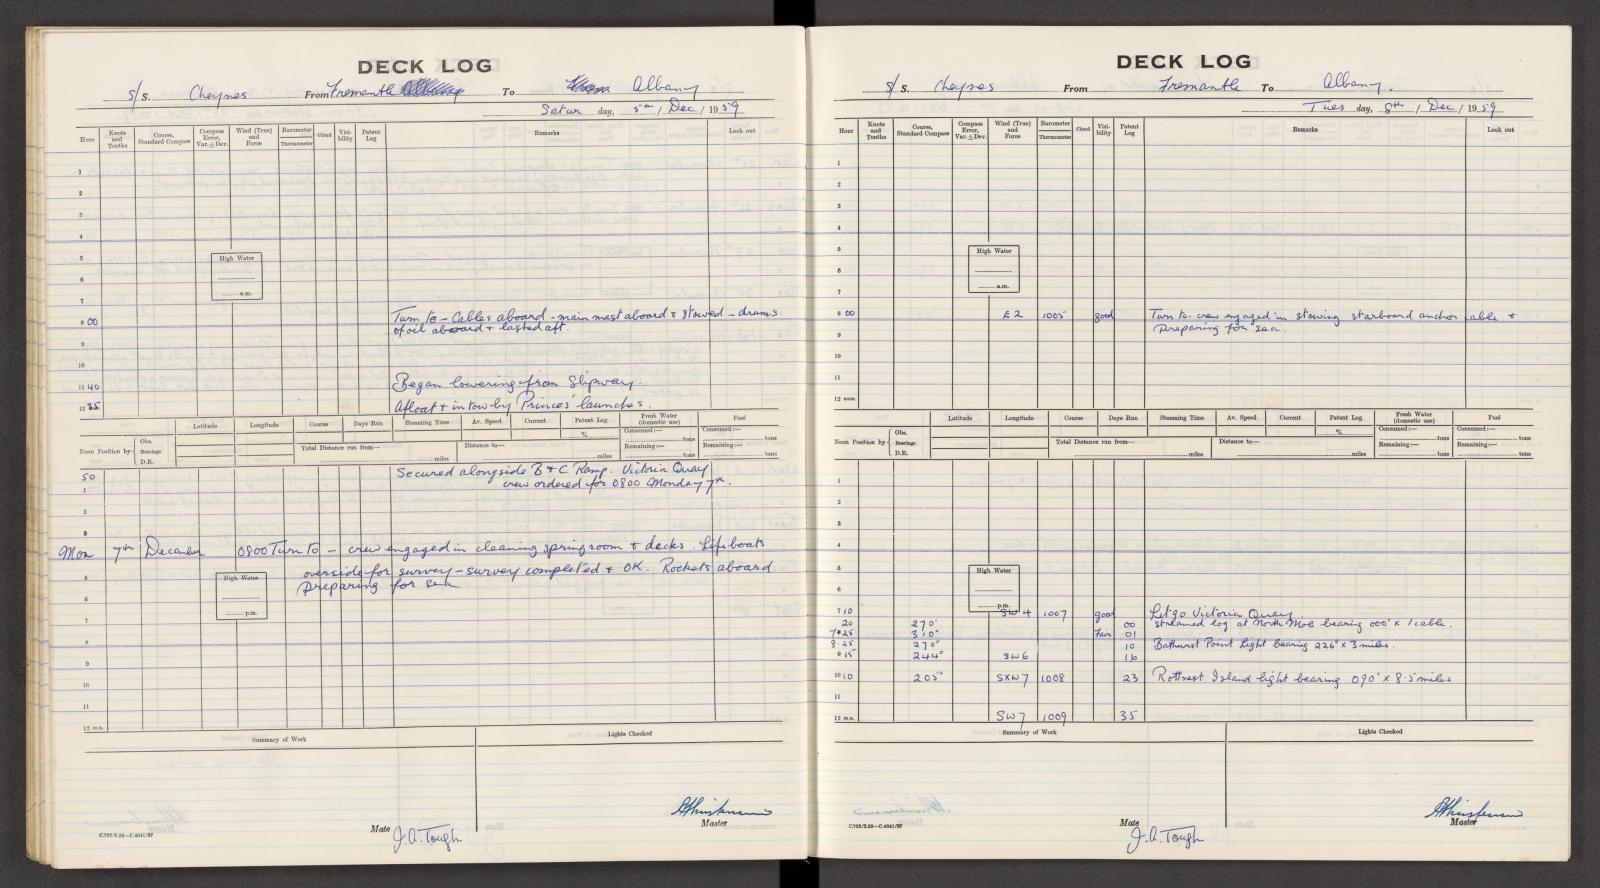 DECK LOG
S/S. Cheynes From Fremantle To Albany
Saturday, 5th / Dec / 1959
Hour Knots and Tenths Course, Standard Compass Compass Error, Var. ± Dev. Wind (True) and Force Barometer Thermometer Cloud Visibility Patent Log Remarks Look out
1
2
3
4
5 High Water
6
a.m.
7
8 00 Turn to - Cables aboard - main mast aboard & stowed - drums
of oil aboard & lashed aft.
9
10
11 40 Began lowering from Slipway.
12 35 Afloat & in tow by Princes' launches.
Latitude Longitude Course Days Run Steaming Time Av. Speed Current Patent Log Fresh Water (domestic use) Fuel
% Consumed:— tons Consumed:— tons
Noon Position by Obs. Bearings D.R. Total Distance run from— miles Distance to— miles Remaining:— tons Remaining:— tons
50 Secured alongside B & C Ramp. Victoria Quay
1 crew ordered for 0800 Monday 7th.
2
3
Mon 7th December 0800 Turn to - crew engaged in cleaning spring room & decks. Lifeboats
5 overside for survey - survey completed & OK. Rockets aboard
High Water preparing for sea
6
p.m.
7
8
9
10
11
12 m.n.
Summary of Work Lights Checked
Mate J.A. Tough Master
C.702/2.58—C.4641/57
DECK LOG
S/S. Cheynes From Fremantle To Albany.
Tuesday, 8th / Dec / 1959
Hour Knots and Tenths Course, Standard Compass Compass Error, Var. ± Dev. Wind (True) and Force Barometer Thermometer Cloud Visibility Patent Log Remarks Look out
1
2
3
4
5 High Water
6
a.m.
7
8 00 E 2 1005 good Turn to - crew engaged in stowing starboard anchor cable &
preparing for sea.
9
10
11
12 noon
Latitude Longitude Course Days Run Steaming Time Av. Speed Current Patent Log Fresh Water (domestic use) Fuel
% Consumed:— tons Consumed:— tons
Noon Position by Obs. Bearings D.R. Total Distance run from— miles Distance to— miles Remaining:— tons Remaining:— tons
1
2
3
4
5
High Water
6
p.m.
7 10 SW 4 1007 good Let go Victoria Quay
20 270° 00 Streamed log at North Mole bearing 000° x 1 cable.
7.25 310° Fair 01
8.25 270° 10 Bathurst Point Light bearing 226° x 3 miles.
9 15 244° SW 6 16
10 10 205° SXW 7 1008 23 Rottnest Island light bearing 090° x 8.5 miles
11
12 m.n. SW 7 1009 35
Summary of Work Lights Checked
Mate J.A. Tough Master
C.702/2.58—C.4641/57